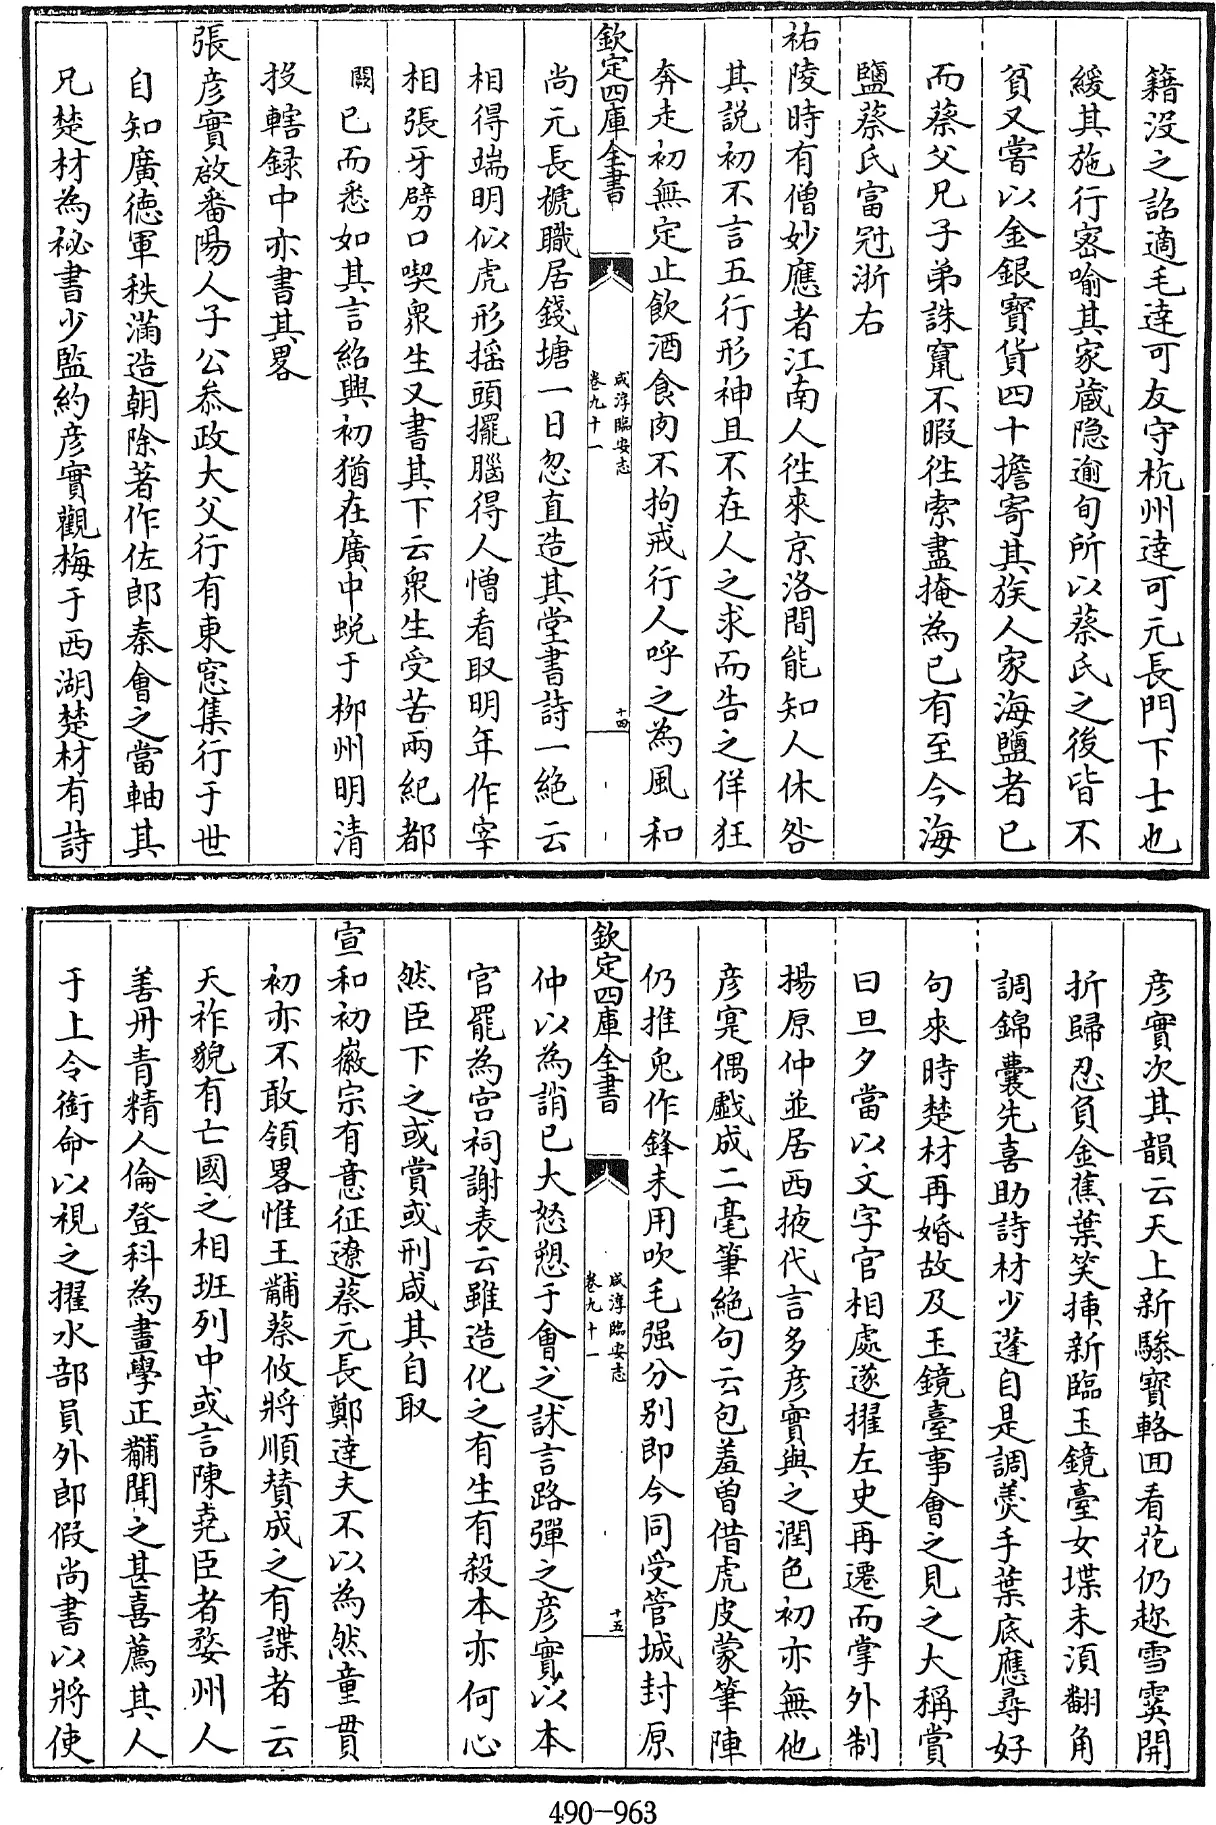 籍没之詔適毛達可友守杭州達可元長門下士也
緩其施行密喻其家藏隠逾旬所以蔡氏之後皆不
貧又嘗以金銀寳貨四十擔寄其族人家海鹽者已
而蔡父兄子弟誅竄不暇徃索盡掩為已有至今海
鹽蔡氏富冠浙右
祐陵時有僧妙應者江南人徃來京洛間能知人休咎
其説初不言五行形神且不在人之求而告之佯狂
奔走初無定止飲酒食肉不拘戒行人呼之為風和
欽定四庫全書
咸淳臨安志
卷九十一
十四
尚元長褫職居錢塘一日忽直造其堂書詩一絶云
相得端明似虎形揺頭擺腦得人憎看取明年作宰
相張牙劈口喫衆生又書其下云衆生受苦兩紀都
闕已而悉如其言紹興初猶在廣中蜕于栁州明清
投轄録中亦書其畧
張彦實啟番陽人子公叅政大父行有東窓集行于世
自知廣徳軍秩滿造朝除著作佐郎秦會之當軸其
兄楚材為祕書少監約彦實觀梅于西湖楚材有詩
彦實次其韻云天上新驂寳輅囬看花仍趂雪霙開
折歸忍負金蕉葉笑挿新臨玉鏡臺女堞未湏翻角
調錦囊先喜助詩材少蓬自是調羮手葉底應尋好
句來時楚材再婚故及玉鏡臺事會之見之大稱賞
曰旦夕當以文字官相處遂擢左史再遷而掌外制
揚原仲並居西掖代言多彦實與之潤色初亦無他
彦寔偶戱成二毫筆絶句云包羞曾借虎皮蒙筆陣
仍推兎作鋒未用吹毛强分别即今同受管城封原
欽定四庫全書
咸淳臨安志
卷九十一
十五
仲以為誚已大怒愬于會之訹言路彈之彦實以本
官罷為宫祠謝表云雖造化之有生有殺本亦何心
然臣下之或賞或刑咸其自取
宣和初徽宗有意征遼蔡元長鄭達夫不以為然童貫
初亦不敢領畧惟王黼蔡攸將順賛成之有諜者云
天祚貌有亡國之相班列中或言陳堯臣者婺州人
善丹青精人倫登科為畫學正黼聞之甚喜薦其人
于上令銜命以視之擢水部員外郎假尚書以將使
490-963